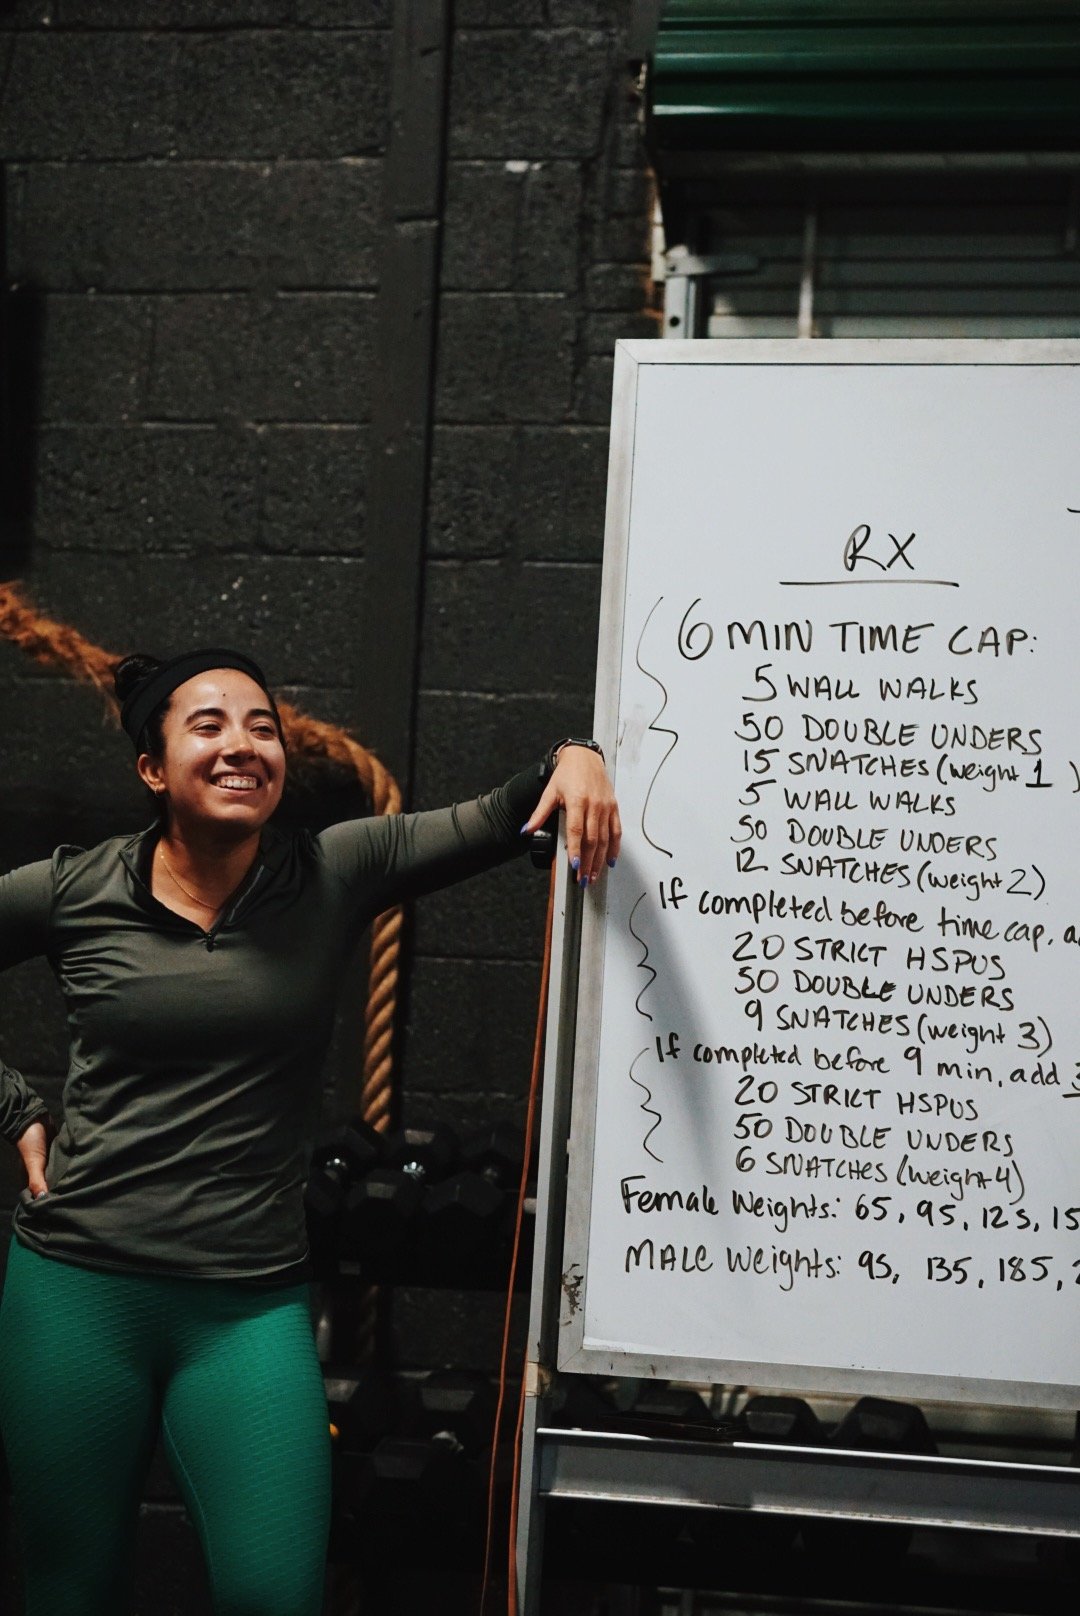 RX
6 MIN TIME CAP:
5 WALL WALKS
50 DOUBLE UNDERS
15 SNATCHES (weight 1)
5 WALL WALKS
50 DOUBLE UNDERS
12 SNATCHES (weight 2)
If completed before time cap,
20 STRICT HSPUS
50 DOUBLE UNDERS
9 SNATCHES (weight 3)
If completed before 9 min, add 3
20 STRICT HSPUS
50 DOUBLE UNDERS
6 SNATCHES (weight 4)
Female Weights: 65, 95, 125, 15
MALE Weights: 95, 135, 185, 2